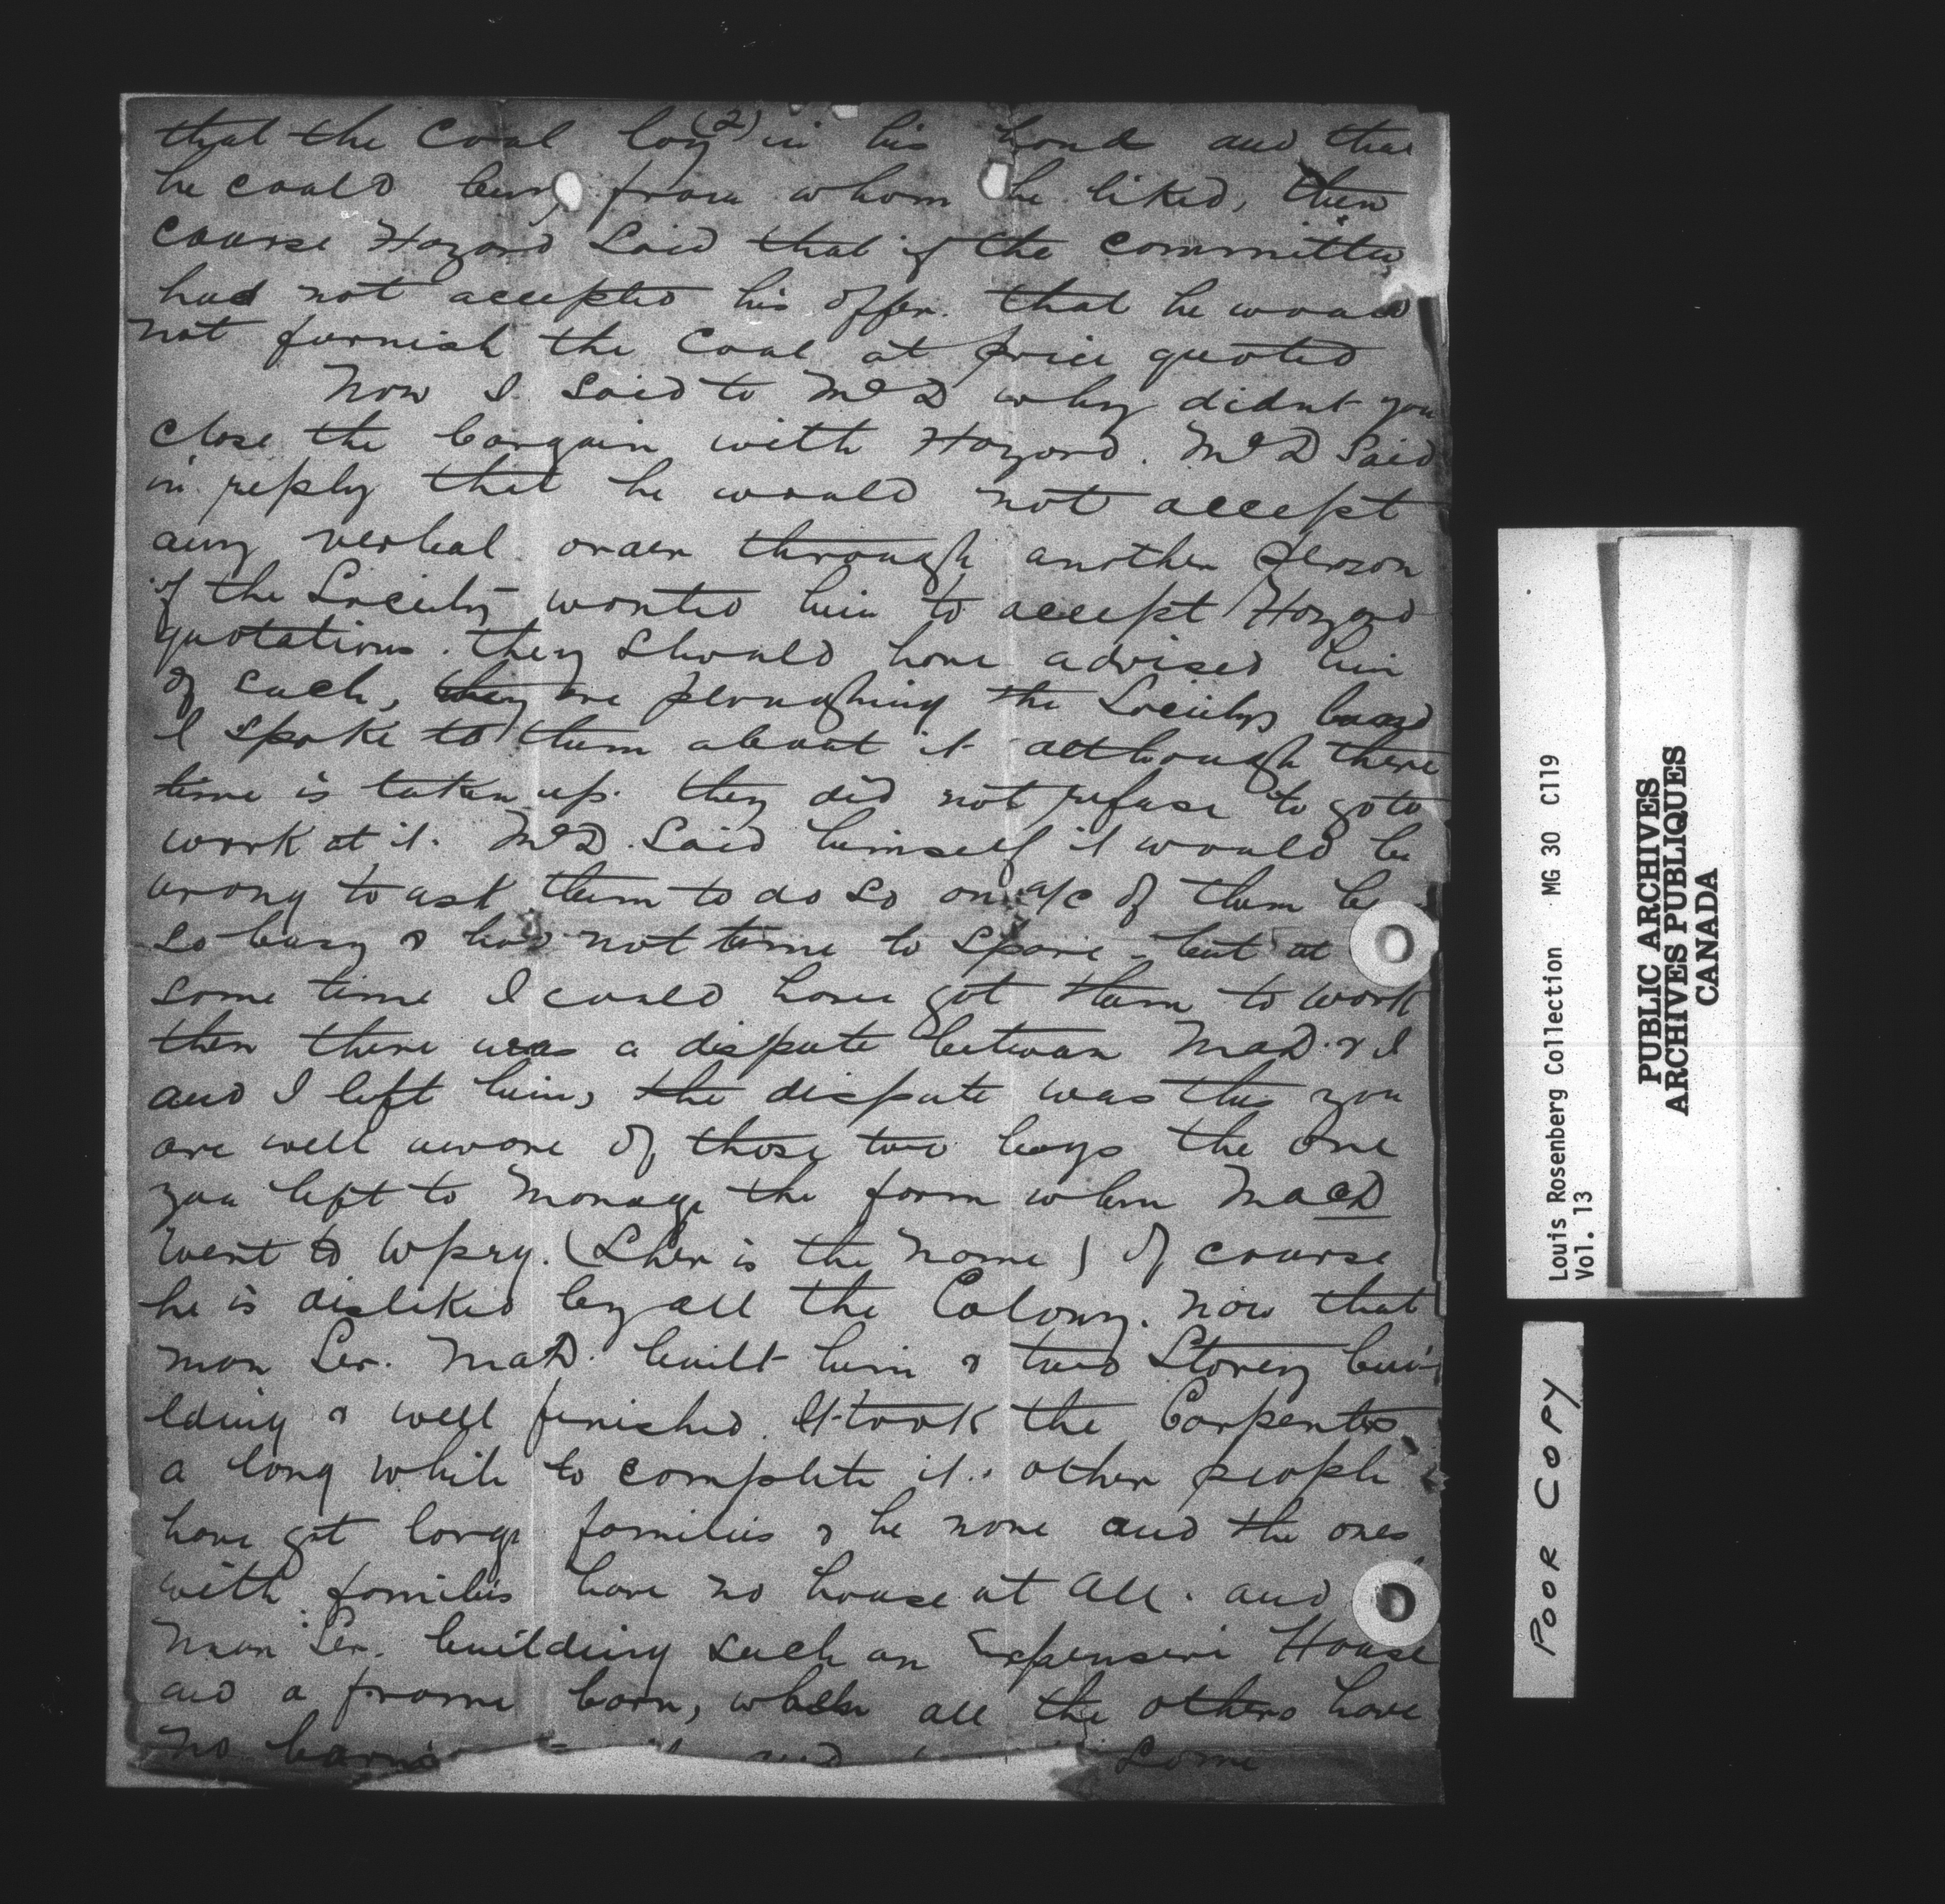 (2)
that the Coal lay in his hands and that
he could buy from whom he liked, then
course Hazard Said that if the Committee
had not accepted his offer. that he would
not furnish the Coal at price quoted
Now I Said to McD why didnt you
close the bargain with Hazard. McD Said
in reply that he would not accept
any verbal order through another person
if the Society wanted him to accept Hazard
quotations. they should have advised him
of such, they are ploughing the Societys land
I spoke to them about it although there
time is taken up. they did not refuse to go to
work at it. McD. Said himself it would be
wrong to ask them to do so on a/c of them
so busy & had not time to Spare - but at
some time I could have got them to work
then there was a dispute between MaD. & I
and I left him, the dispute was this you
are well aware of those two boys the one
you left to Manage the farm when MacD
went to Wpeg. (Sher is the name) of course
he is disliked by all the Colony. Now that
man Ser. MaD. built him a two Storey bui
lding & well finished. It took the Carpenters
a long while to complete it. other people
have got large families & he none and the ones
with families have no house at all. and
Man Ser. building such an Expensive House
and a frame barn, when all the others have
no barns and Some
Louis Rosenberg Collection MG 30 C119
Vol. 13
PUBLIC ARCHIVES
ARCHIVES PUBLIQUES
CANADA
POOR COPY